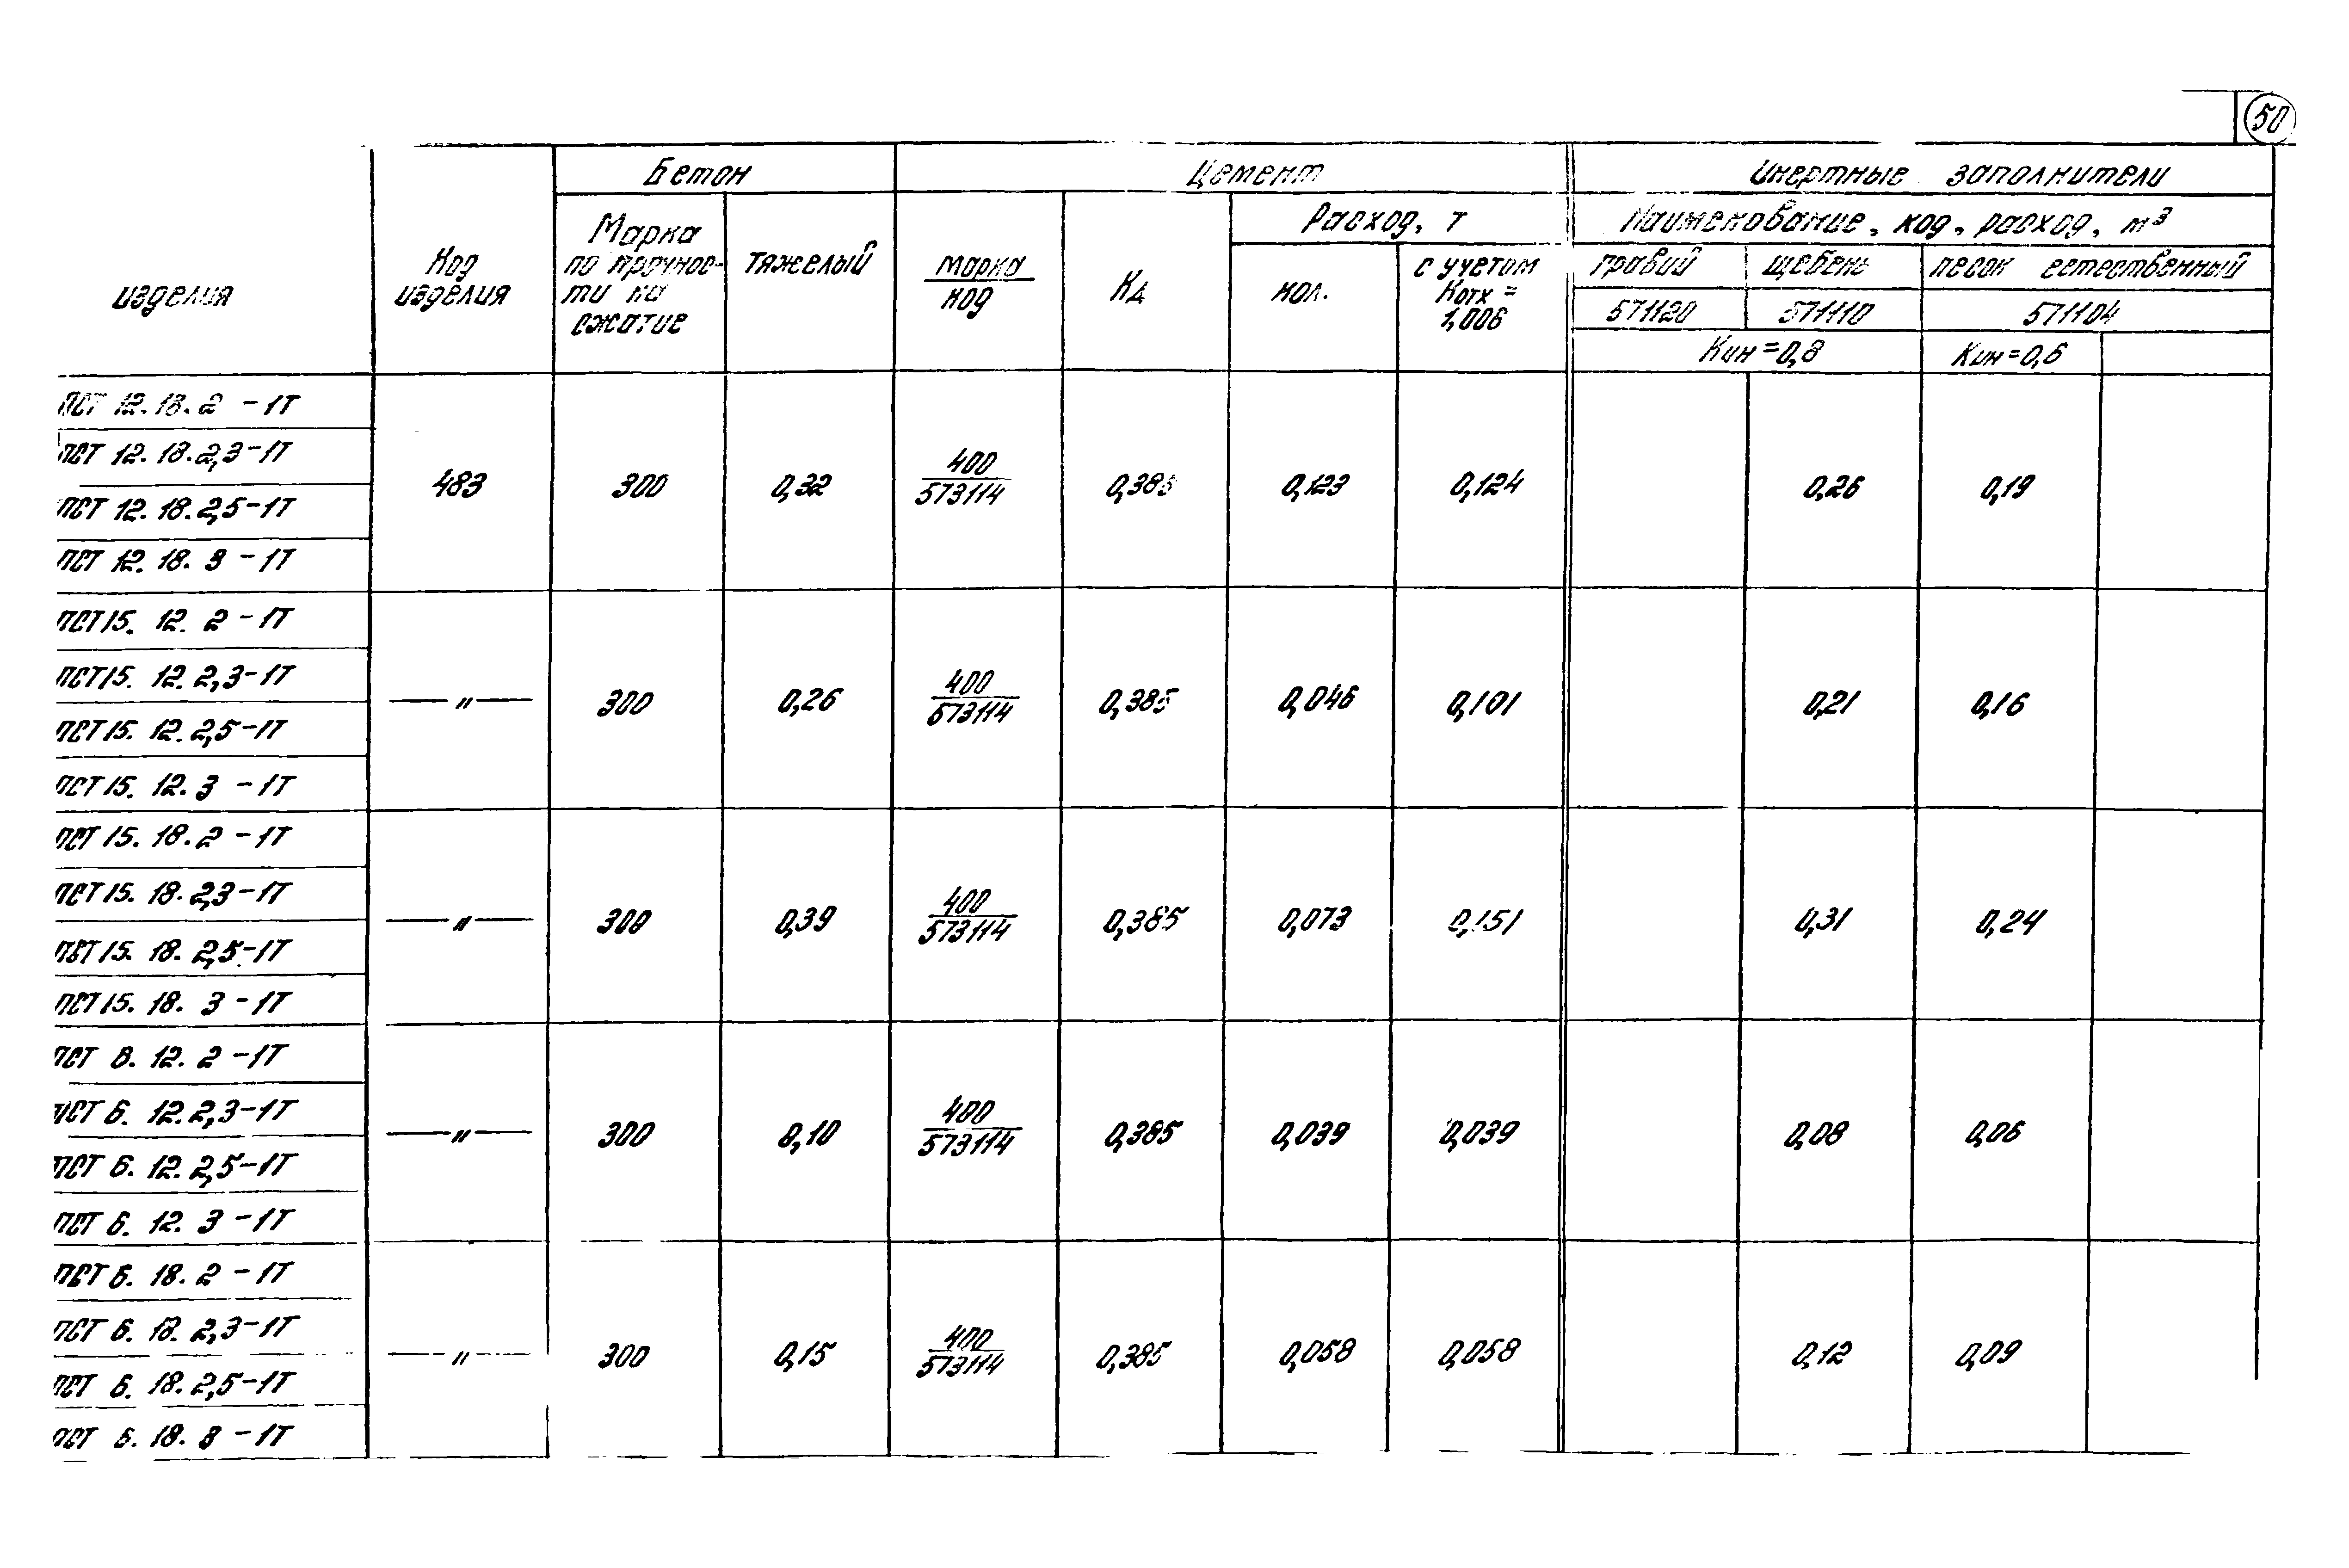 50
изделия
Код
изделия
Бетон
Цемент
Инертные заполнители
Марка
по прочнос-
ти на
сжатие
тяжелый
марка
код
Кд
Расход, т
кол.
с учетом
Котх =
1,006
Наименование, код, расход, м³
гравий
щебень
песок естественный
571120
571110
571104
Кин=0,8
Кин=0,6
ПСТ 12.18.2 -1Т
ПСТ 12.18.2,3-1Т
ПСТ 12.18.2,5-1Т
ПСТ 12.18.3 -1Т
483
300
0,32
400
573114
0,385
0,123
0,124
0,26
0,19
ПСТ 15. 12. 2 -1Т
ПСТ 15. 12. 2,3-1Т
ПСТ 15. 12. 2,5-1Т
ПСТ 15. 12. 3 -1Т
— " —
300
0,26
400
573114
0,385
0,046
0,101
0,21
0,16
ПСТ 15. 18. 2 -1Т
ПСТ 15. 18. 2,3-1Т
ПСТ 15. 18. 2,5-1Т
ПСТ 15. 18. 3 -1Т
— " —
300
0,39
400
573114
0,385
0,073
0,151
0,31
0,24
ПСТ 6. 12. 2 -1Т
ПСТ 6. 12. 2,3-1Т
ПСТ 6. 12. 2,5-1Т
ПСТ 6. 12. 3 -1Т
— " —
300
0,10
400
573114
0,385
0,039
0,039
0,08
0,06
ПСТ 6. 18. 2 -1Т
ПСТ 6. 18. 2,3-1Т
ПСТ 6. 18. 2,5-1Т
ПСТ 6. 18. 3 -1Т
— " —
300
0,15
400
573114
0,385
0,058
0,058
0,12
0,09